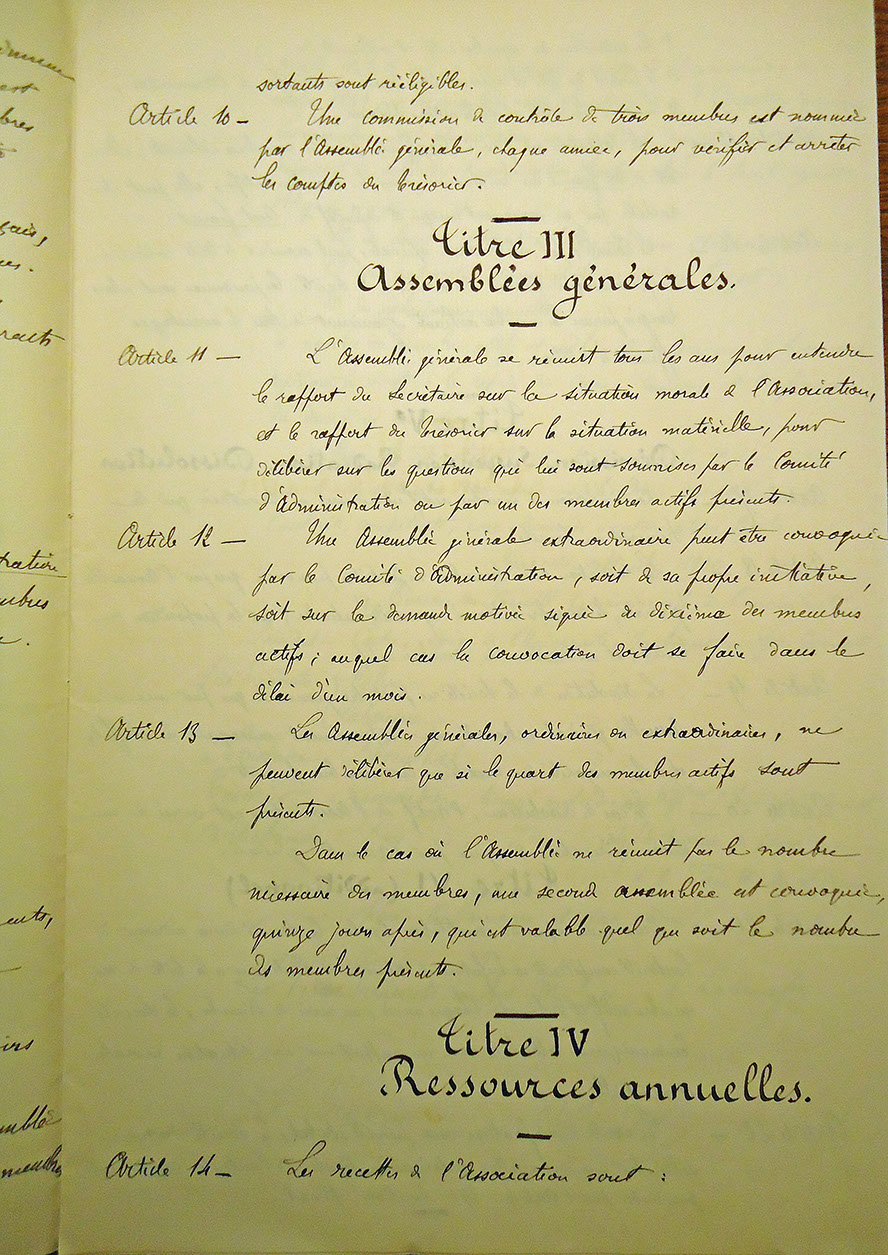 sortants sont rééligibles.
Article 10 – Une commission de contrôle de trois membres est nommée
par l'Assemblée générale, chaque année, pour vérifier et arrêter
les comptes du trésorier.
Titre III
Assemblées générales.
Article 11 – L'Assemblée générale se réunit tous les ans pour entendre
le rapport du Secrétaire sur la situation morale de l'Association,
et le rapport du trésorier sur la situation matérielle, pour
délibérer sur les questions qui lui sont soumises par le Comité
d'Administration ou par un des membres actifs présents.
Article 12 – Une Assemblée générale extraordinaire peut être convoquée
par le Comité d'Administration, soit de sa propre initiative,
soit sur la demande motivée signée du dixième des membres
actifs ; auquel cas la convocation doit se faire dans le
délai d'un mois.
Article 13 – Les Assemblées générales, ordinaires ou extraordinaires, ne
peuvent délibérer que si le quart des membres actifs sont
présents.
Dans le cas où l'Assemblée ne réunit pas le nombre
nécessaire des membres, une seconde assemblée est convoquée,
quinze jours après, qui est valable quel que soit le nombre
des membres présents.
Titre IV
Ressources annuelles.
Article 14 – Les recettes de l'Association sont :